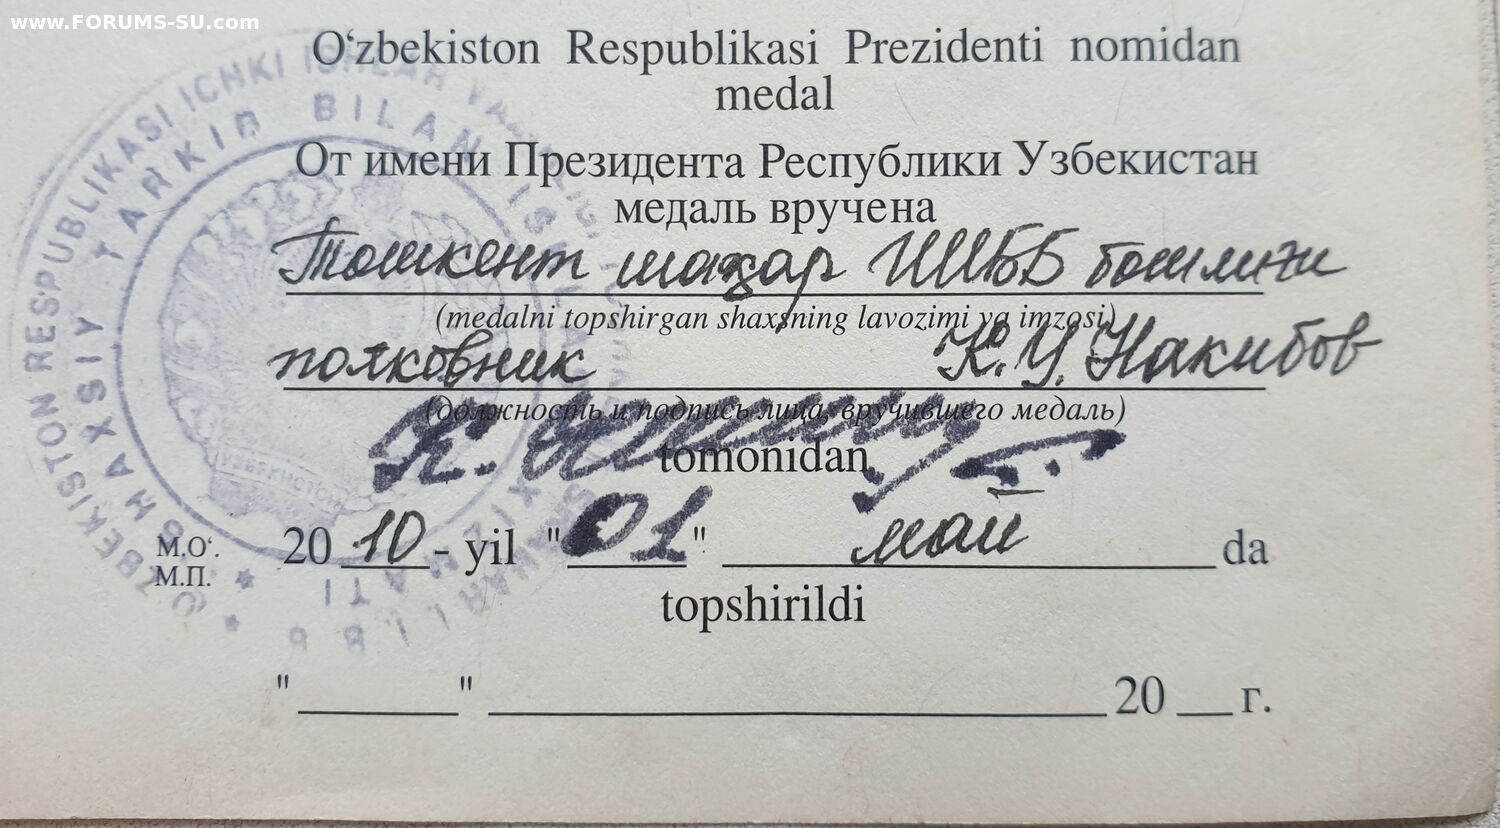 www.FORUMS-SU.com
O‘zbekiston Respublikasi Prezidenti nomidan
medal
От имени Президента Республики Узбекистан
медаль вручена
Тошкент шаҳар ИИББ бошлиғи
(medalni topshirgan shaxsning lavozimi va imzosi)
полковник К.У. Накибов
(должность и подпись лица, вручившего медаль)
tomonidan
M.O‘. 20 10 - yil "01" май da
М.П.
topshirildi
" " 20 г.
O‘ZBEKISTON RESPUBLIKASI ICHKI ISHLAR
SHAXSIY TARKIB BILAN